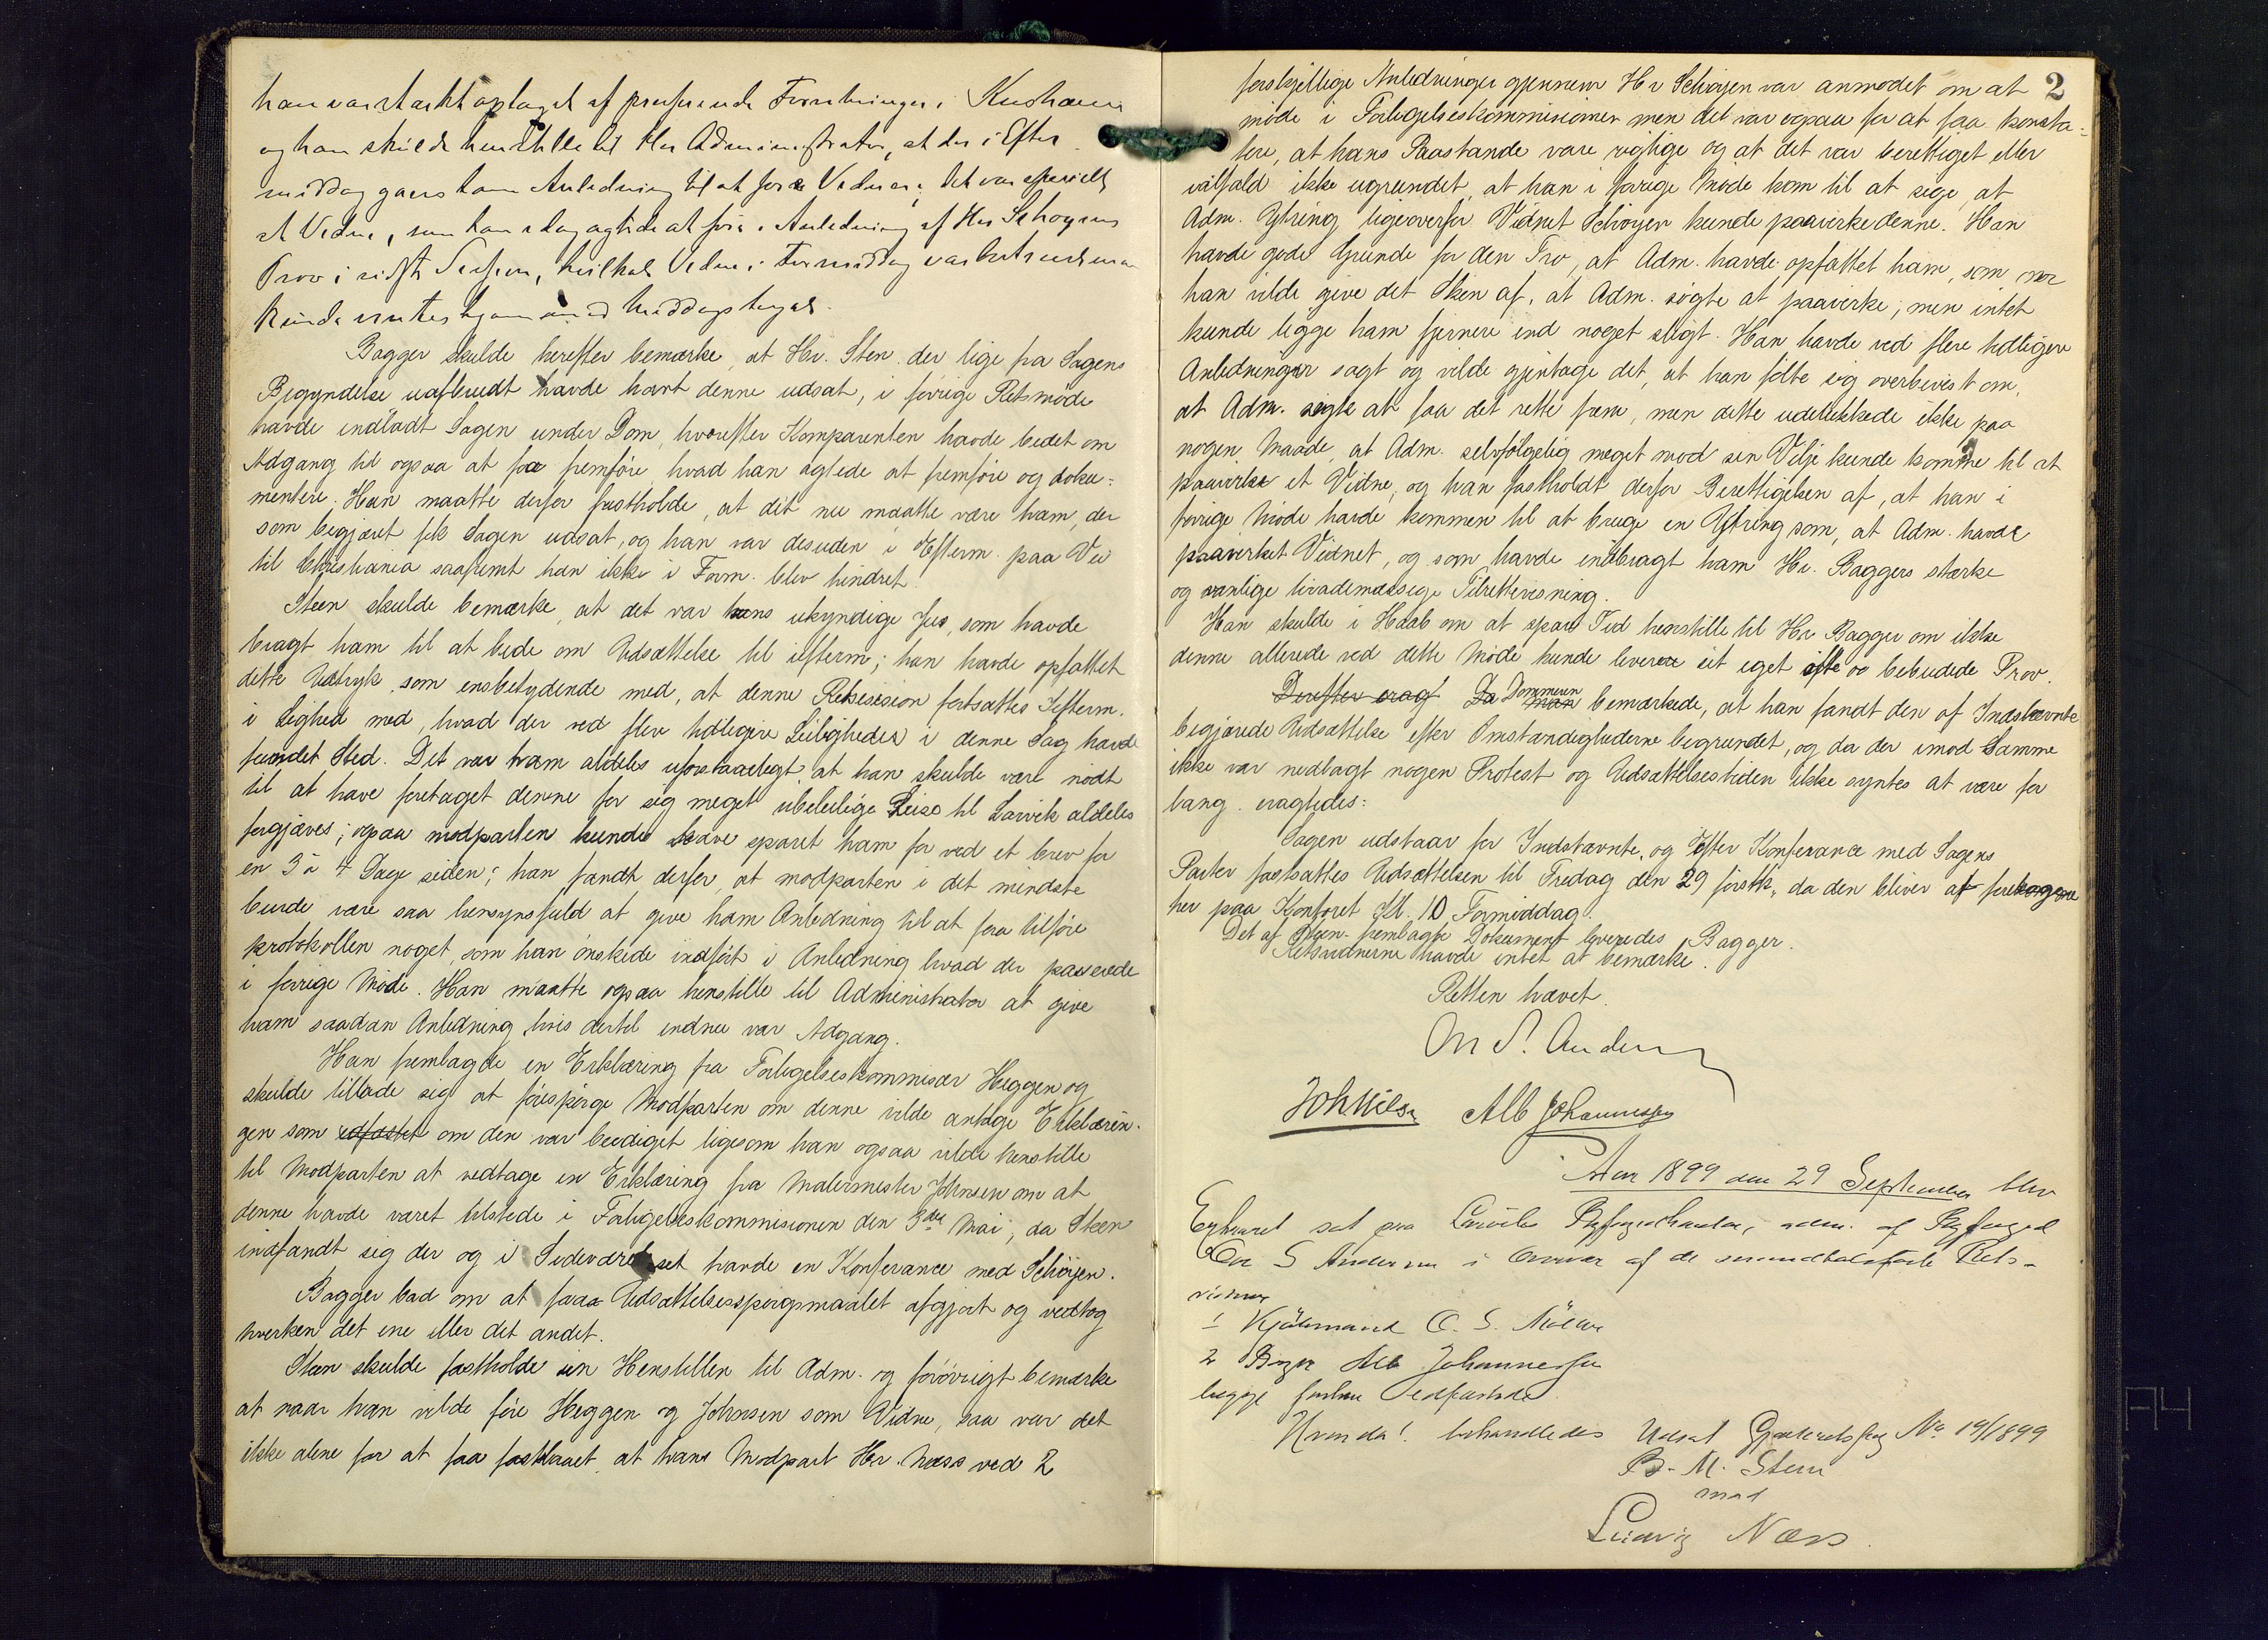 han var stærkt optaget af presserende Forretninger i Kristiania
og han skulde henstille til Hr Administrator, at der i Efter
middag gaves ham Anledning til at føre Vidner; det var specielt
et Vidne, som han idag agtede at føre i Anledning af Hr Schøyens
Prov i sidste Session, hvilket Vidne i Formiddag var bortreist men
kunde ventes hjem med Middagstoget.
Bagger skulde herefter bemærke, at Hr. Sten der lige fra Sagens
Begyndelse uafbrudt havde havt denne udsat, i forrige Retsmøde
havde indladt Sagen under Dom, hvorefter Komparenten havde bedet om
Adgang til ogsaa at faa fremføre, hvad han agtede at fremføre og doku-
mentere. Han maatte derfor fastholde, at det nu maatte være ham, der
som begjæret fik Sagen udsat, og han var desuden i Efterm. paa Vei
til Christiania saafremt han ikke i Form. blev hindret.
Steen skulde bemærke, at det var hans ukyndige Jus, som havde
bragt ham til at bede om Udsættelse til ifterm; han havde opfattet
dette Udtryk som ensbetydende med, at denne Retssesion fortsattes Iefterm.
i Lighed med, hvad der ved flere tidligere Leiligheder i denne Sag havde
fundet Sted. Det var ham aldeles uforstaaeligt, at han skulde være nødt
til at have foretaget denne for sig meget ubeleilige Reise til Larvik aldeles
forgjæves; ogsaa modparten kunde have sparet ham for ved et brev for
en 3 à 4 Dage siden; han fandt derfor, at modparten i det mindste
burde være saa hensynsfuld at give ham Anledning til at faa tilføre
protokollen noget, som han ønskede indført i Anledning hvad der passerede
i forrige Møde. Han maatte ogsaa henstille til Administrator at give
ham saadan Anledning, hvis dertil endnu var Adgang.
Han fremlagde en Erklæring fra Forligelseskommisær Heggen og
skulde tillade sig at forespørge Modparten om denne vilde antage Erklærin-
gen som edfæstet om den var beediget ligesom han ogsaa vilde henstille
til Modparten at vedtage en Erklæring fra Malermester Johnsen om at
denne havde været tilstede i Forligelseskommisionen den 3die Mai, da Steen
indfandt sig der og i Sideværelset havde en Konferance med Schøyen.
Bagger bad om at faa Udsættelsesspørgsmaalet afgjort og vedtog
hverken det ene eller det andet.
Steen skulde fastholde sin Henstillen til Adm. og forøvrigt bemærke
at naar han vilde føre Heggen og Johnsen som Vidne, saa var det
ikke alene for at faa fastslaaet, at hans Modpart Hr. Næss ved 2
2
forskjellige Anledninger gjennem Hr Schøyen var anmodet om at
møde i Forligelseskommisionen men det var ogsaa for at faa konsta-
tere, at hans Paastande vare rigtige og at det var berettiget eller
ialfald ikke ugrundet, at han i forrige Møde kom til at sige, at
Adm. Ytring ligeoverfor Vidnet Schøyen kunde paavirke denne. Han
havde gode Grunde for den Tro, at Adm. havde opfattet ham, som om
han vilde give det Skin af, at Adm. søgte at paavirke; men intet
kunde ligge ham fjernere end noget sligt. Han havde ved flere tidligere
Anledninger sagt og vilde gjentage det, at han følte sig overbevist om,
at Adm. søgte at faa det rette frem, men dette udelukkede ikke paa
nogen Maade, at Adm. selvfølgelig meget mod sin Vilje kunde komme til at
paavirke et Vidne, og han fastholdt derfor Berettigelsen af, at han i
forrige Møde havde kommen til at bruge en Ytring som, at Adm. havde
paavirket Vidnet, og som havde indbragt ham Hr. Baggers stærke
og vanlige livademæssige Tilrettevisning.
Han skulde i Haab om at spare Tid henstille til Hr Bagger om ikke
denne allerede ved dette Møde kunde levere sit eget ofte bebudede Prov.
Derefter eragt Da Dommeren man bemærkede, at han fandt den af Indstævnte
begjærede Udsættelse efter Omstændighederne begrundet, og da der imod Samme
ikke var nedlagt nogen Protest og Udsættelsestiden ikke syntes at være for
lang. eragtedes:
Sagen udstaar for Indstævnte, og efter Konferance med Sagens
Parter fastsattes Udsættelsen til Fredag den 29 førstk, da den bliver at foretagen
her paa Kontoret Kl. 10 Formiddag.
Det af Steen fremlagte Dokument leveredes Bagger.
Retsvidnerne havde intet at bemærke.
Retten hævet.
S. Andersen
Joh Nilsen Alb Johannessen
Aar 1899 den 29 September blev
Extraret sat paa Larviks Byfogedkontor, adm. af Byfoged
S Andersen i Overvær af de Rets-
vidner
1 Kjøbmand O. S. Nilsen
2 Alb Johannessen
begge forhen edfæstede.
Hvorda! behandledes Udsat Gjæsteretssag No 19/1899
B. M. Steen
mod
Ludvig Næss.